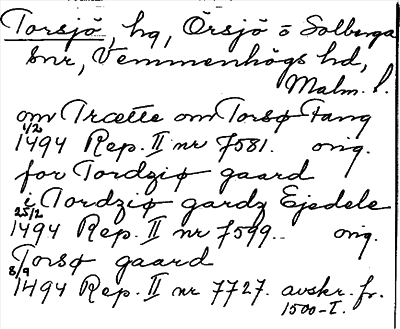 Torsjö, hg, Örsjö o Solberga
snr, Vemmenhögs hd,
Malm. l.
om Trætte om Torsø Fang
1/2
1494 Rep. II nr 7581. orig.
for Tordziø gaard
i Tordziø gardz Ejedele
25/2
1494 Rep. II nr 7599.. orig.
Torsø gaard
8/9
1494 Rep. II nr 7727. avskr. fr.
1500-t.